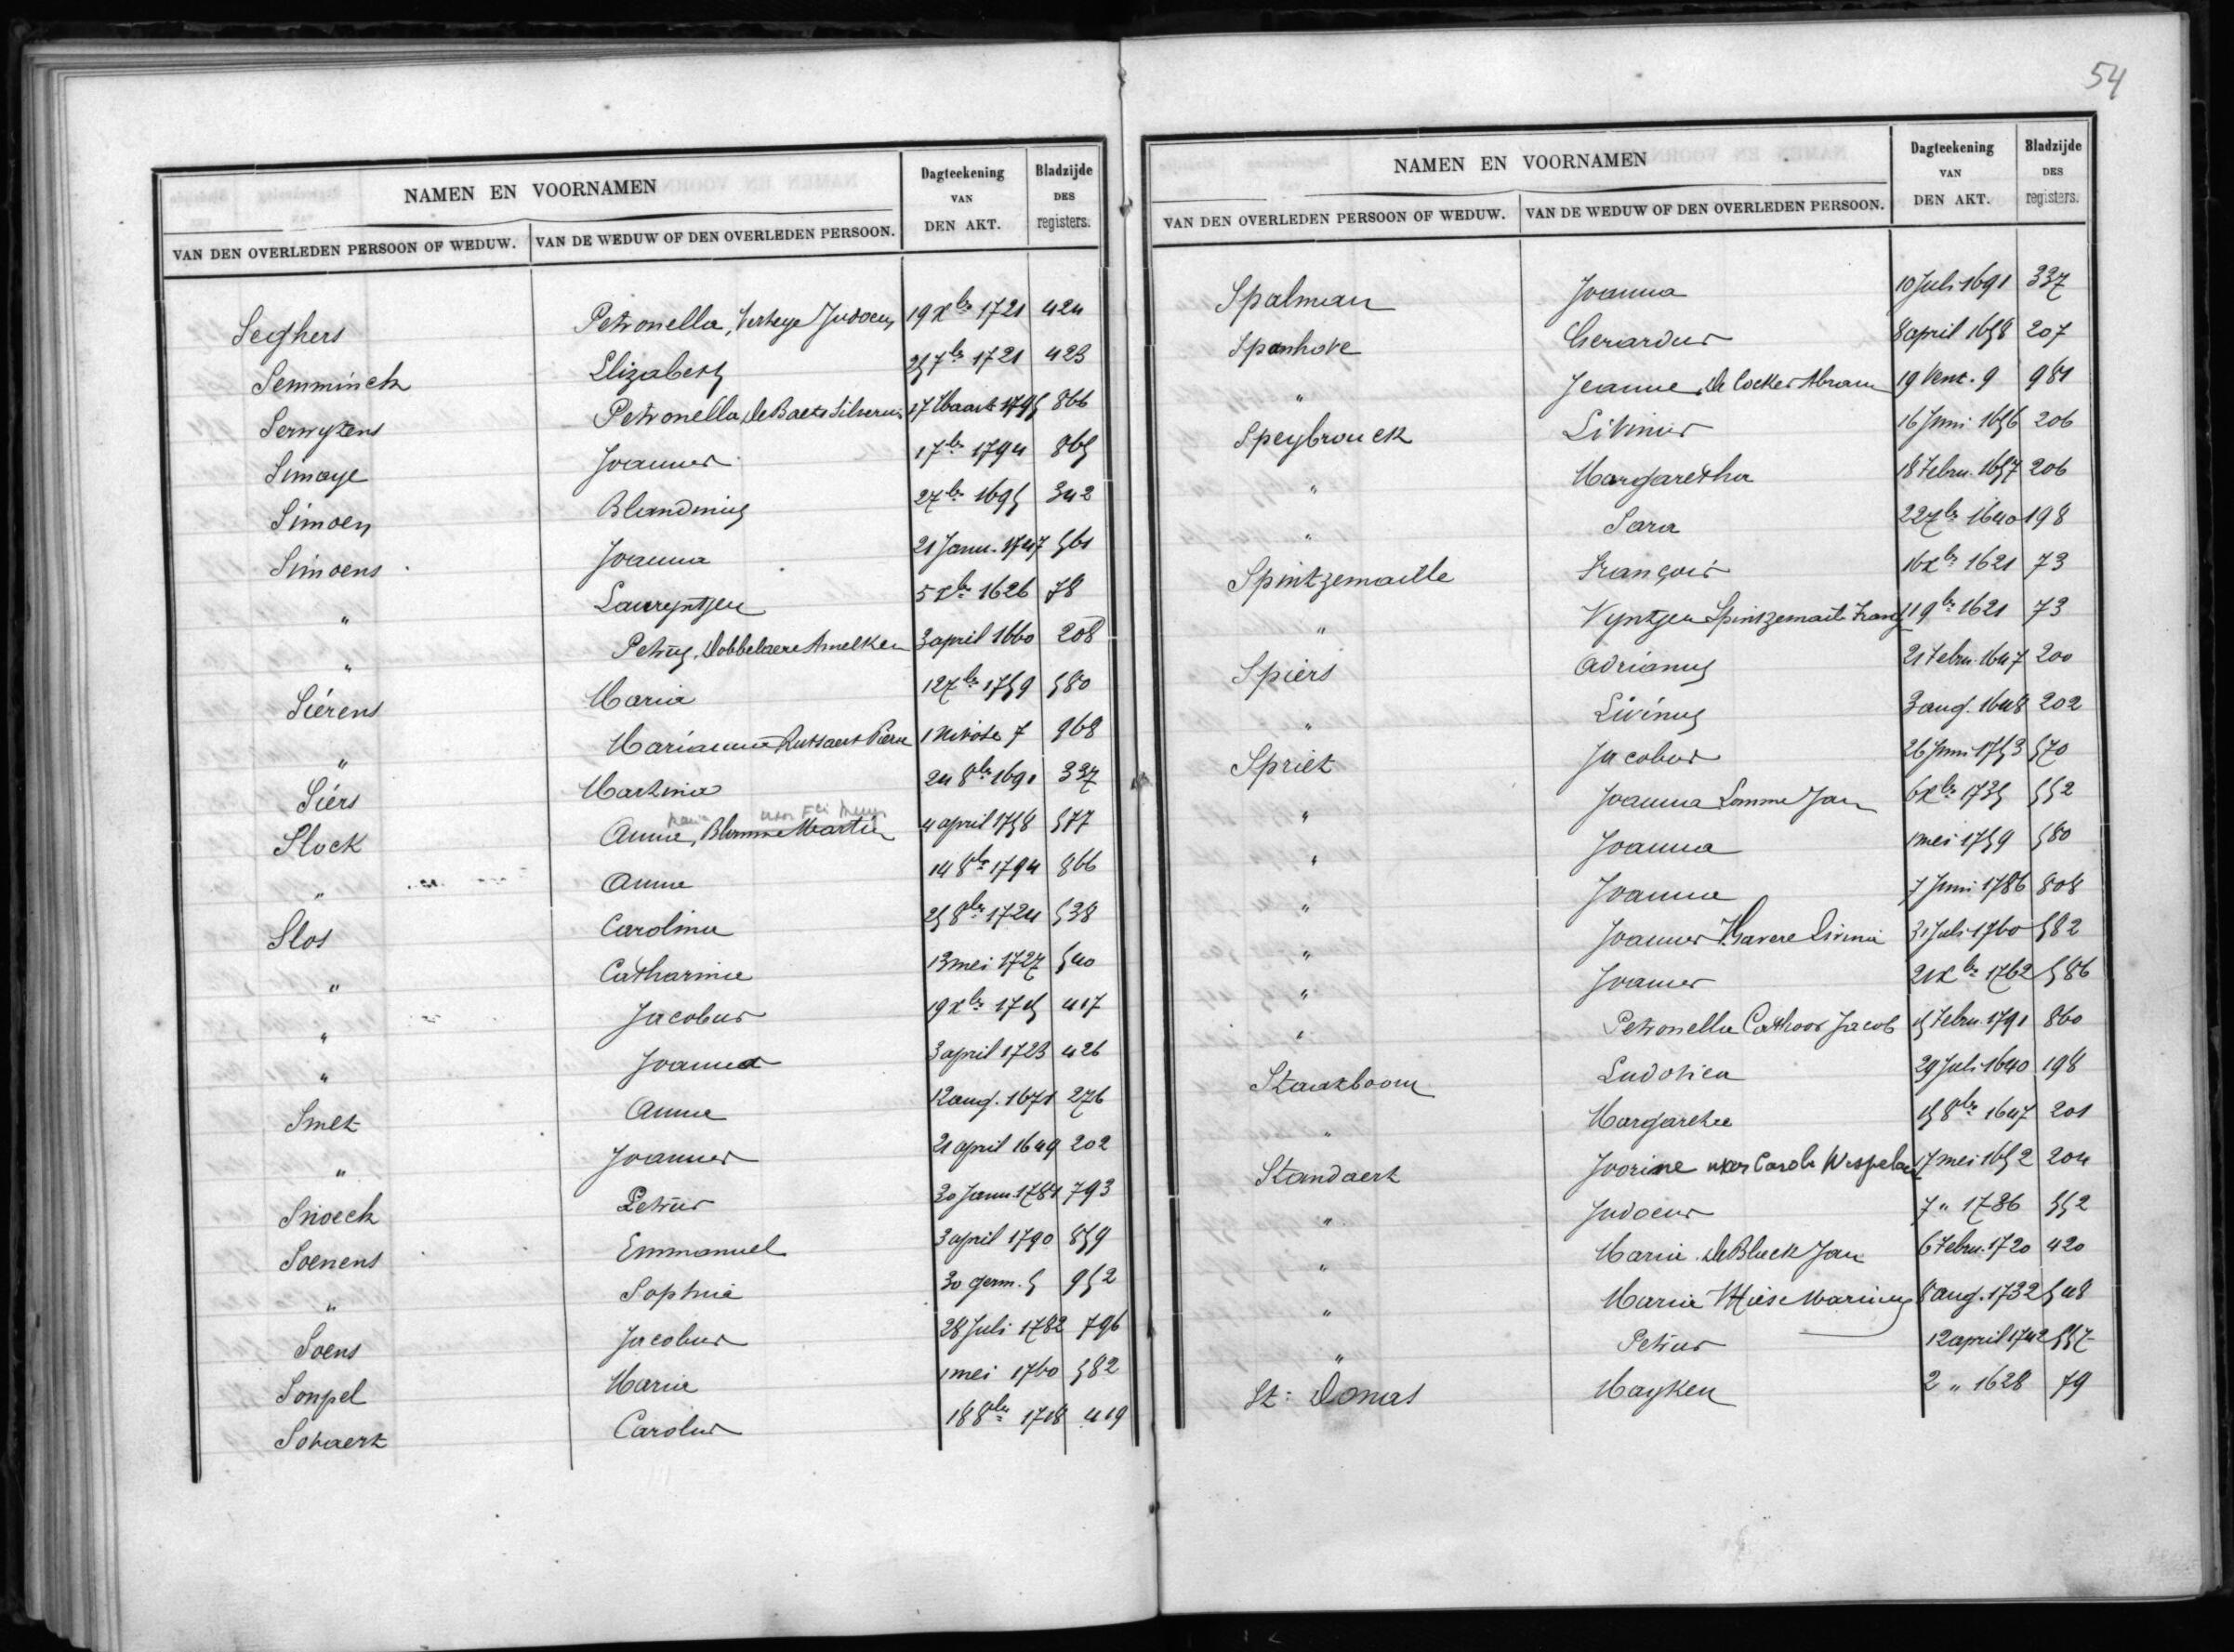 54
NAMEN EN VOORNAMEN | Dagteekening VAN DEN AKT. | Bladzijde DES registers.
VAN DEN OVERLEDEN PERSOON OF WEDUW. | VAN DE WEDUW OF DEN OVERLEDEN PERSOON.
Seghers Petronella, Verheye Judocus 19 Xbr 1721 424
Semminck Elizabeth 25 7br 1721 423
Serwytens Petronella, De Baets Silverius 17 Maart 1795 866
Simaye Joannes 1 7br 1794 865
Simoen Blandinus 2 7br 1695 342
Simoens Joanna 21 Janu. 1747 561
" Laureyntjen 5 Xbr 1626 78
" Petrus, Dobbelaere Amelken 3 april 1660 208
Siérens Maria 12 7br 1759 580
" Marianne Rutsaert Piere 1 Nivose 7 968
Siérs Martina 24 8br 1690 337
Slock Anna, Blomme Martin 4 april 1758 577
" Anna 14 8br 1794 866
Slos Carolina 25 8br 1724 538
" Catharina 13 mei 1727 540
" Jacobus 19 Xbr 1715 417
" Joanna 3 april 1723 426
Smet Anna 12 aug. 1671 276
" Joannes 21 april 1649 202
Snoeck Petrus 30 Janu. 1781 793
Soenens Emmanuel 3 april 1790 859
" Sophia 30 germ. 5 952
Soens Jacobus 28 Juli 1782 796
Sonpel Maria 1 mei 1760 582
Sohaert Carolus 18 8br 1718 419
NAMEN EN VOORNAMEN | Dagteekening VAN DEN AKT. | Bladzijde DES registers.
VAN DEN OVERLEDEN PERSOON OF WEDUW. | VAN DE WEDUW OF DEN OVERLEDEN PERSOON.
Spalman Joanna 10 Juli 1691 337
Spanhove Gerardus 8 april 1658 207
" Jeanne De Cocker Abram 19 Vent. 9 981
Speybrouck Livinus 16 Juni 1656 206
" Margaretha 18 Febru. 1657 206
" Sara 22 7br 1640 198
Spintzemaille François 16 Xbr 1621 73
" Vyntgen Spintzemaile Franç 11 9br 1621 73
Spiers Adrianus 21 Febru. 1647 200
" Livinus 3 aug. 1648 202
Spriet Jacobus 26 Juni 1753 570
" Joanna Lomme Jan 6 Xbr 1735 552
" Joanna 1 mei 1759 580
" Joanna 7 Juni 1786 808
" Joannes Vhavere Livina 31 Juli 1760 582
" Joannes 21 Xbr 1762 586
" Petronella Cathoor Jacob 15 Febru. 1791 860
Staatboom Ludovica 29 Juli 1640 198
" Margareta 15 8br 1647 201
Standaert Joorine uxor Caroli Wespelaer 17 mei 1652 204
" Judocus 7 " 1736 552
" Maria De Bluck Jan 6 Febru. 1720 420
" Maria Marinus 8 aug. 1732 548
" Petrus 12 april 1742 557
St: Domas Mayken 2 " 1628 79